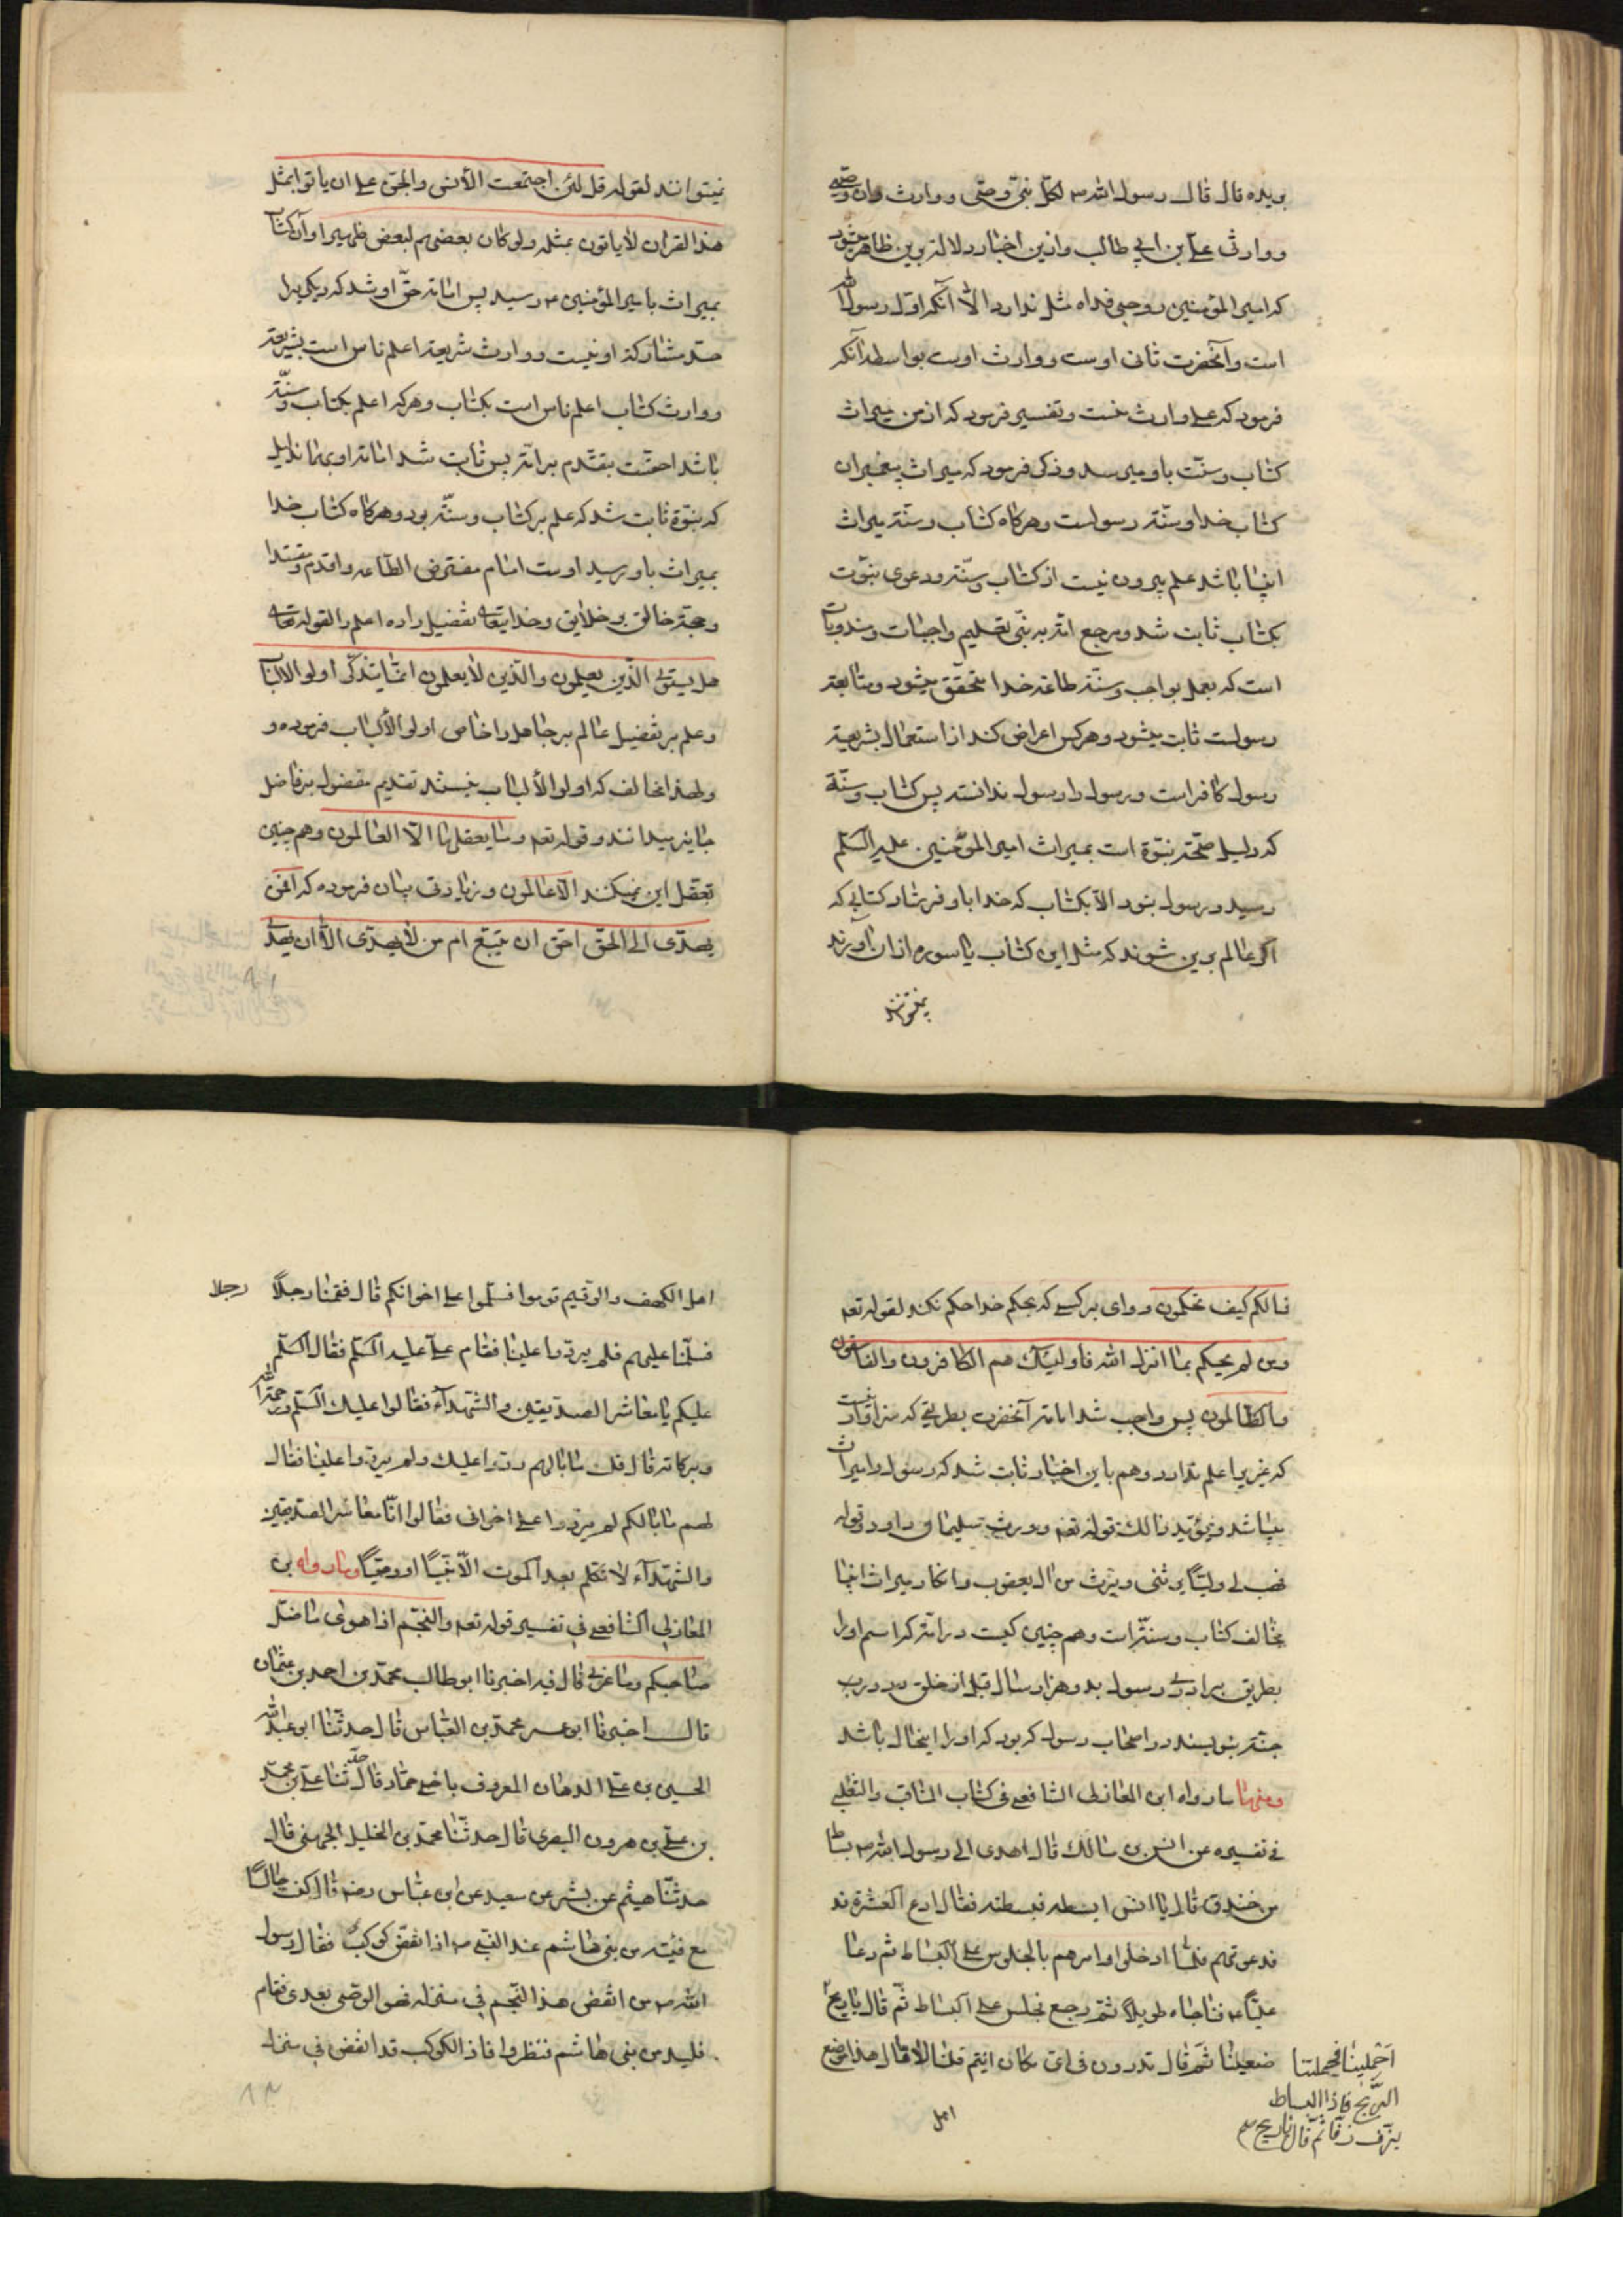 بریده قال قال رسول الله ص لکل نبی وصی و وارث وان وصیی
و وارثی علی بن ابی طالب وازین اخبار دلالة برین ظاهر میشود
که امیر المؤمنین روحی فداه مثل ندارد الا آنکه اول رسول الله
است و آنحضرت ثانی اوست و وارث اوست بواسطه آنکه
فرمود که علی وارث منست و تفسیر فرمود که از من میراث
کتاب و سنّت باو میرسد و ذکر فرمود که میراث پیغمبران
کتاب خدا و سنّة رسولست و هرکاه کتاب و سنّة میراث
انبیا باشد علم بیرون نیست از کتاب و سنّة و دعوی نبوّت
بکتاب ثابت شد و مرجع امّة به نبی تعلیم واجبات و مندوبات
است که بعمل بواجب و سنّة طاعة خدا متحقّق میشود و متابعة
رسولست ثابت میشود و هرکس اعراض کند از استعمال بشریعة
رسول کافر است و رسول را رسول ندانسته پس کتاب و سنّة
که دلیل صحّة نبوّة است بمیراث امیر المؤمنین علیه السّلم
رسید و رسول نبود الّا بکتاب که خدا باو فرستاد کتابی که
اکر عالم برین شوند که مثل این کتاب یا سوره از ان آورند
نمیتوانند
نمیتوانند لقوله قل لئن اجتمعت الانس والجن علی ان یاتوا بمثل
هذا القران لا یاتون بمثله ولو کان بعضهم لبعض ظهیرا و آن کتاب
بمیراث بامیر المؤمنین ع رسید پس امامة حقّ او شد که دیکریرا
حدّ مشارکة او نیست و وارث شریعة اعلم ناس است بشریعة
و وارث کتاب اعلم ناس است بکتاب و هرکه اعلم بکتاب و سنّة
باشد احقّست بتقدّم بر امّة پس ثابت شد امامة او بهمان دلیل
که نبوّة ثابت شد که علم بر کتاب و سنّة بود و هرکاه کتاب خدا
بمیراث باو رسید اوست امام مفترض الطّاعه و اقدم و مقتدا
و حجّة خالق بر خلایق و خدایتعالی تفضیل داده اعلم را لقوله تعالی
هل یستوی الّذین یعلمون والّذین لا یعلمون انّما یتذکّر اولو الالباب
و علم بر تفضیل عالم بر جاهل را خاص اولو الألباب فرموده و
و لهذا مخالف که اولو الألباب نیستند تقدیم مفضول بر فاضل
جایز میدانند و قوله تعه وما یعقلها الّا العالمون و هم چنین
تعقل این نمیکند الّا عالمون و زیادتی بیان فرموده که افمن
یهدی الی الحقّ احق ان یتبع ام من لا یهدّی الّا ان یهدی
فما لکم کیف تحکمون و وای بر کسی که بحکم خدا حکم نکند لقوله تعه
ومن لم یحکم بما انزل الله فاولئک هم الکافرون والفاسقون
والظالمون پس واجب شد امامة آنحضرت بطریقی که سزاوارست
که غیری اعلم ندارد و هم باین اخبار ثابت شد که رسول را میراث
میباشد و یؤید ذالک قوله تعه و ورث سلیمان داود و قوله
فهب لی ولیّا یرثنی ویرث من ال یعقوب و انکار میراث انبیا
مخالف کتاب و سنّة است و هم چنین کیست در امّة که اسم او را
بطریق برادری رسول بدو هزار سال قبل از خلق در درب
جنّة بنویسند و در اصحاب رسول که بود که او را اینحال باشد
ومنها ما رواه ابن المغازلی الشافعی فی کتاب المناقب والثعلبی
فی تفسیره عن انس بن مالک قال اهدی الی رسول الله ص بساط
من خندق قال یا انس ابسطه فبسطته فقال ادع العشرة فد
فدعوتهم فلمّا ادخلوا امرهم بالجلوس علی البساط ثم دعا
علیّا ع فناجاه طویلا ثمّ رجع فجلس علی البساط ثمّ قال یا ریح
ضعینا ثمّ قال تدرون فی ای مکان انتم قلنا لا قال هذا موضع
احملینا فحملتنا
الرّیح فاذا البساط
یزف زفّا ثم قال یا ریح
اهل
اهل الکهف والرقیم قوموا فسلّموا علی اخوانکم قال فقمنا رجلاً
رجلا
فسلّمنا علیهم فلم یردّوا علینا فقام علی علیه السّلم فقال السّلم
علیکم یا معاشر الصدیقین والشّهداء فقالوا علیک السّلم ورحمة الله
وبرکاته قال قلت ما بالهم ردّوا علیک ولم یردّوا علینا فقال
لهم ما بالکم لم یردّوا علی اخوانی فقالوا انّا معاشر الصدیقین
والشهداء لا نتکلم بعد الموت الّا نبیّا او وصیّا وما رواه بن
المغازلی الشافعی فی تفسیر قوله تعه والنجم اذا هوی ما ضل
صاحبکم وما غوی قال فیه اخبرنا ابو طالب محمّد بن احمد بن عثمان
قال اخبرنا ابو عمر محمّد بن العبّاس قال حدّثنا ابو عبد الله
الحسین بن علی الدهان المعروف باخی حمّاد قال حدّثنا علی بن محمّد
بن علی بن هرون البصری قال حدثنا محمّد بن الخلیل الجهنی قال
حدثنا هیثم عن بشر عن سعید عن ابن عبّاس رضه قال کنت جالسا
مع فتیه من بنی هاشم عند النبی ص اذ انقضّ کوکب فقال رسول
الله ص من انقض هذا النّجم فی منزله فهو الوصی بعدی فقام
فلیه من بنی هاشم فنظروا فاذ الکوکب قد انقض فی منزل